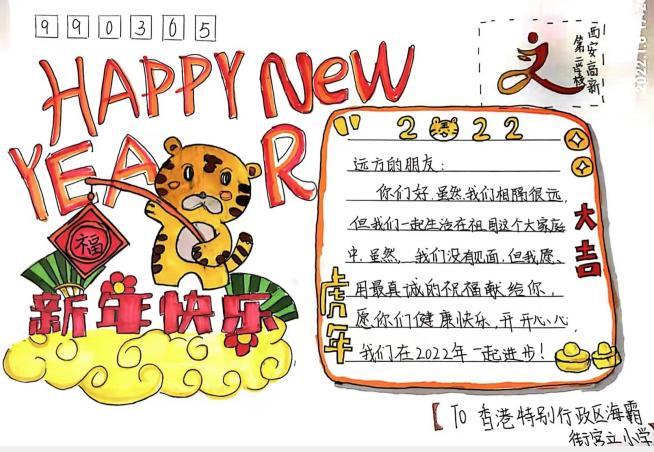 990365
HAPPY NeW
YEAR
福
新年快乐
西安高新
2022
远方的朋友：
你们好,虽然我们相隔很远,
但我们一起生活在祖国这个大家庭
中.虽然,我们没有见面,但我愿、
用最真诚的祝福献给你,
愿你们健康快乐,开开心心,
我们在2022年一起进步!
大吉
虎年
【To 香港特别行政区海霸
街官立小学